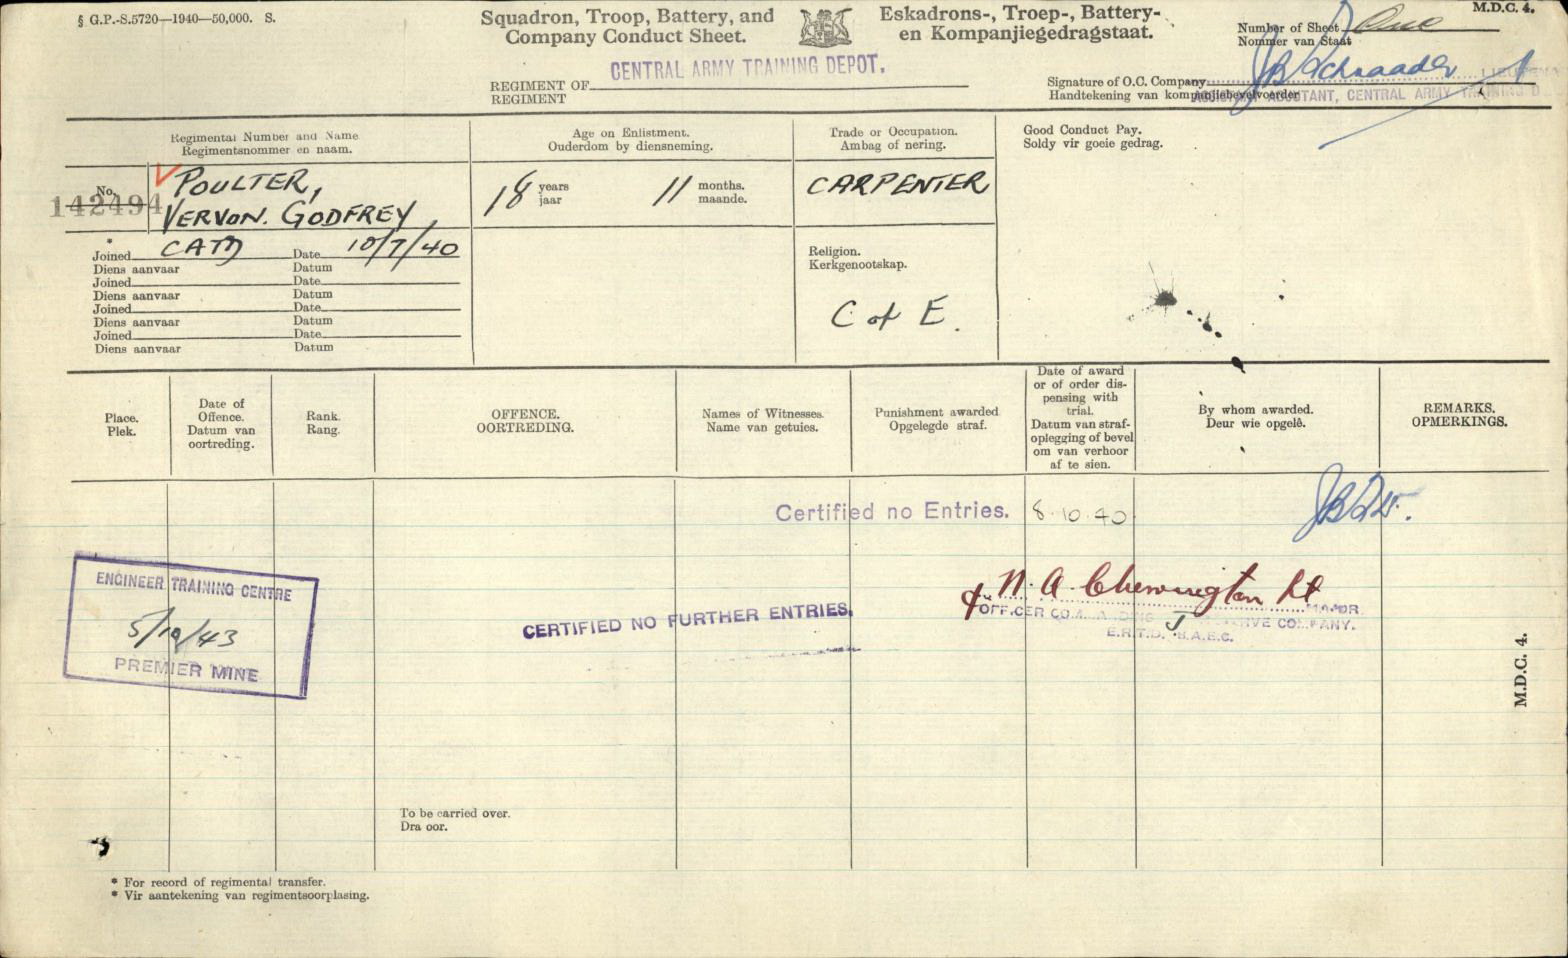 § G.P.-S.5720—1940—50,000. S.
Squadron, Troop, Battery, and
Company Conduct Sheet.
Eskadrons-, Troep-, Battery-
en Kompanjiegedragstaat.
M.D.C. 4.
Number of Sheet One
Nommer van Staat
REGIMENT OF CENTRAL ARMY TRAINING DEPOT.
REGIMENT
Signature of O.C. Company JB Schraader LIEUTENA
Handtekening van kompanjiebevelvoerder
ASSISTANT ADJUTANT, CENTRAL ARMY TRAINING D
Regimental Number and Name
Regimentsnommer en naam.
Age on Enlistment.
Ouderdom by diensneming.
Trade or Occupation.
Ambag of nering.
Good Conduct Pay.
Soldy vir goeie gedrag.
No.
142494
POULTER,
VERVON. GODFREY
18 years
jaar
11 months.
maande.
CARPENTER
Joined CATD Date 10/7/40
Diens aanvaar Datum
Joined Date
Diens aanvaar Datum
Joined Date
Diens aanvaar Datum
Joined Date
Diens aanvaar Datum
Religion.
Kerkgenootskap.
C of E.
Place.
Plek.
Date of
Offence.
Datum van
oortreding.
Rank.
Rang.
OFFENCE.
OORTREDING.
Names of Witnesses.
Name van getuies.
Punishment awarded
Opgelegde straf.
Date of award
or of order dis-
pensing with
trial.
Datum van straf-
oplegging of bevel
om van verhoor
af te sien.
By whom awarded.
Deur wie opgelê.
REMARKS.
OPMERKINGS.
Certified no Entries. 8.10.40
ENGINEER TRAINING CENTRE
5/10/43
PREMIER MINE
CERTIFIED NO FURTHER ENTRIES.
N. A. Cherrington Lt
MAJOR
OFFICER COMMANDING COMPANY.
E.R.T.D. S.A.E.C.
M.D.C. 4.
To be carried over.
Dra oor.
* For record of regimental transfer.
* Vir aantekening van regimentsoorplasing.